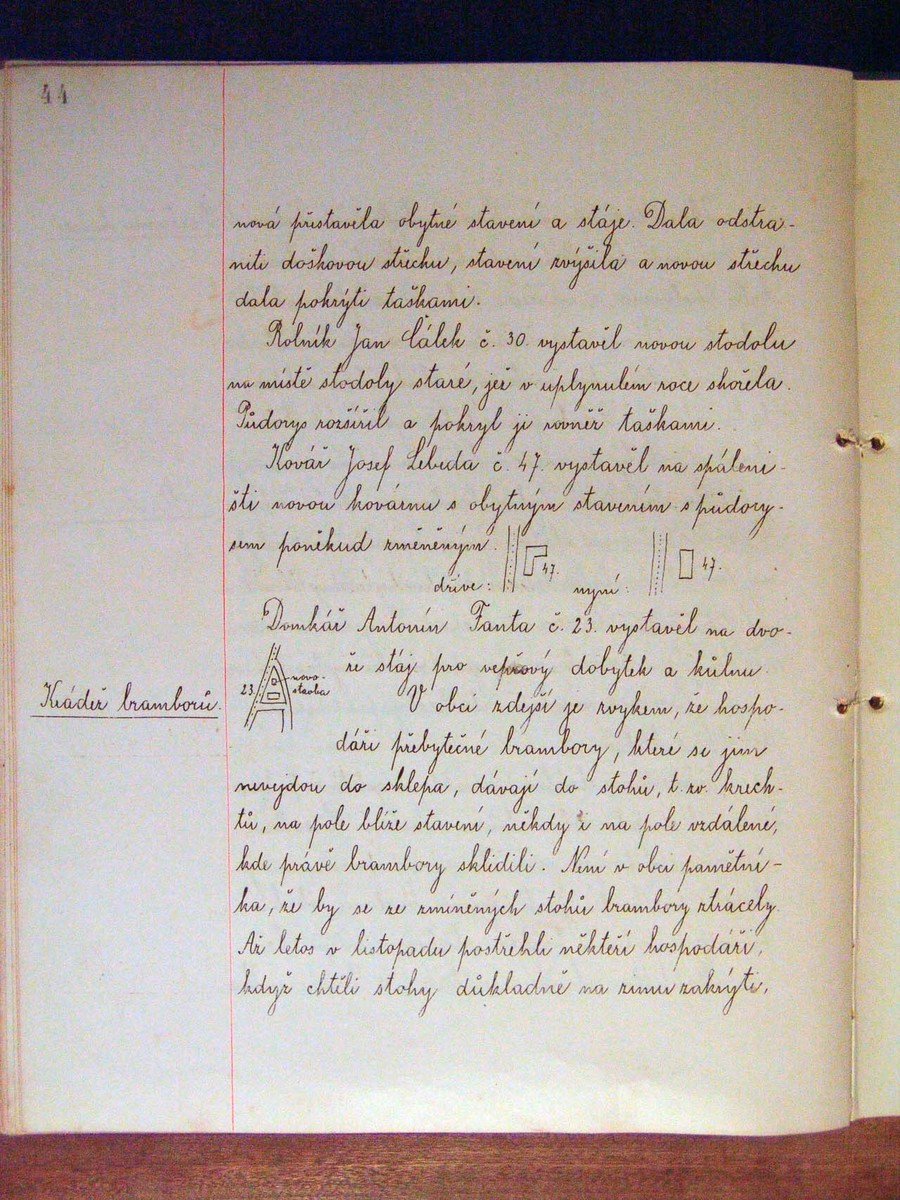 44
nová přistavěla obytné stavení a stáje. Dala odstra-
niti doškovou střechu, stavení zvýšila a novou střechu
dala pokrýti taškami.
Rolník Jan Čálek č. 30. vystavěl novou stodolu
na místě stodoly staré, jež v uplynulém roce shořela.
Půdorys rozšířil a pokryl ji rovněž taškami.
Kovář Josef Lebeda č. 47. vystavěl na spáleni-
šti novou kovárnu s obytným stavením s půdory-
sem poněkud změněným.
dříve: 47. nyní: 47.
Domkář Antonín Fanta č. 23. vystavěl na dvo-
ře stáj pro vepřový dobytek a kůlnu.
23. novo-
stavba
Krádež bramborů.
V obci zdejší je zvykem, že hospo-
dáři přebytečné brambory, které se jim
nevejdou do sklepa, dávají do stohů, t. zv. krech-
tů, na pole blíže stavení, někdy i na pole vzdálené,
kde právě brambory sklidili. Není v obci pamětní-
ka, že by se ze zmíněných stohů brambory ztrácely.
Až letos v listopadu postřehli někteří hospodáři,
když chtěli stohy důkladně na zimu zakrýti,